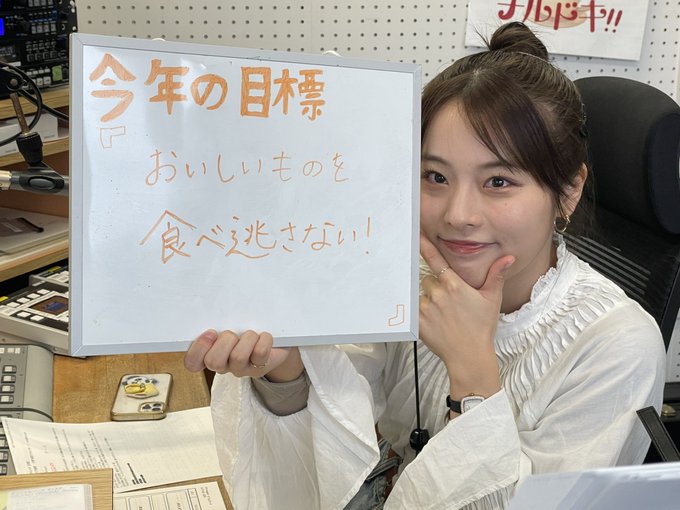 ナルドキ!!
今年の目標
『
おいしいものを
食べ逃さない!
』